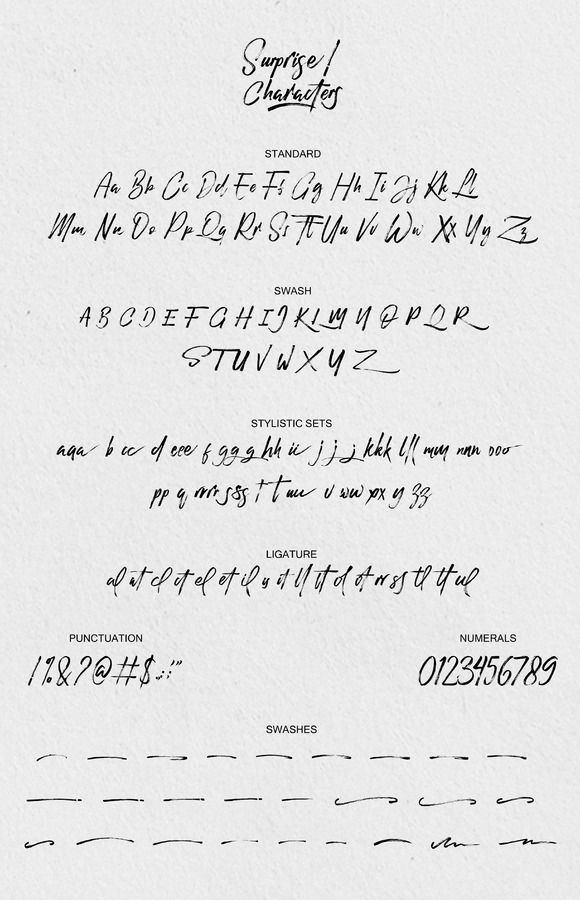 Surprise!
Characters
STANDARD
Aa Bb Cc Dd Ee Ff Gg Hh Ii Jj Kk Ll
Mm Nn Oo Pp Qq Rr Ss Tt Uu Vv Ww Xx Yy Zz
SWASH
A B C D E F G H I J K L M N O P Q R
S T U V W X Y Z
STYLISTIC SETS
aaa b cc d eee f ggg g hh ii j j j kkk lll mm nnn ooo
pp q rrrr sss t t uu v ww px y zz
LIGATURE
PUNCTUATION
!%&?@#$.,:;'"
NUMERALS
0123456789
SWASHES